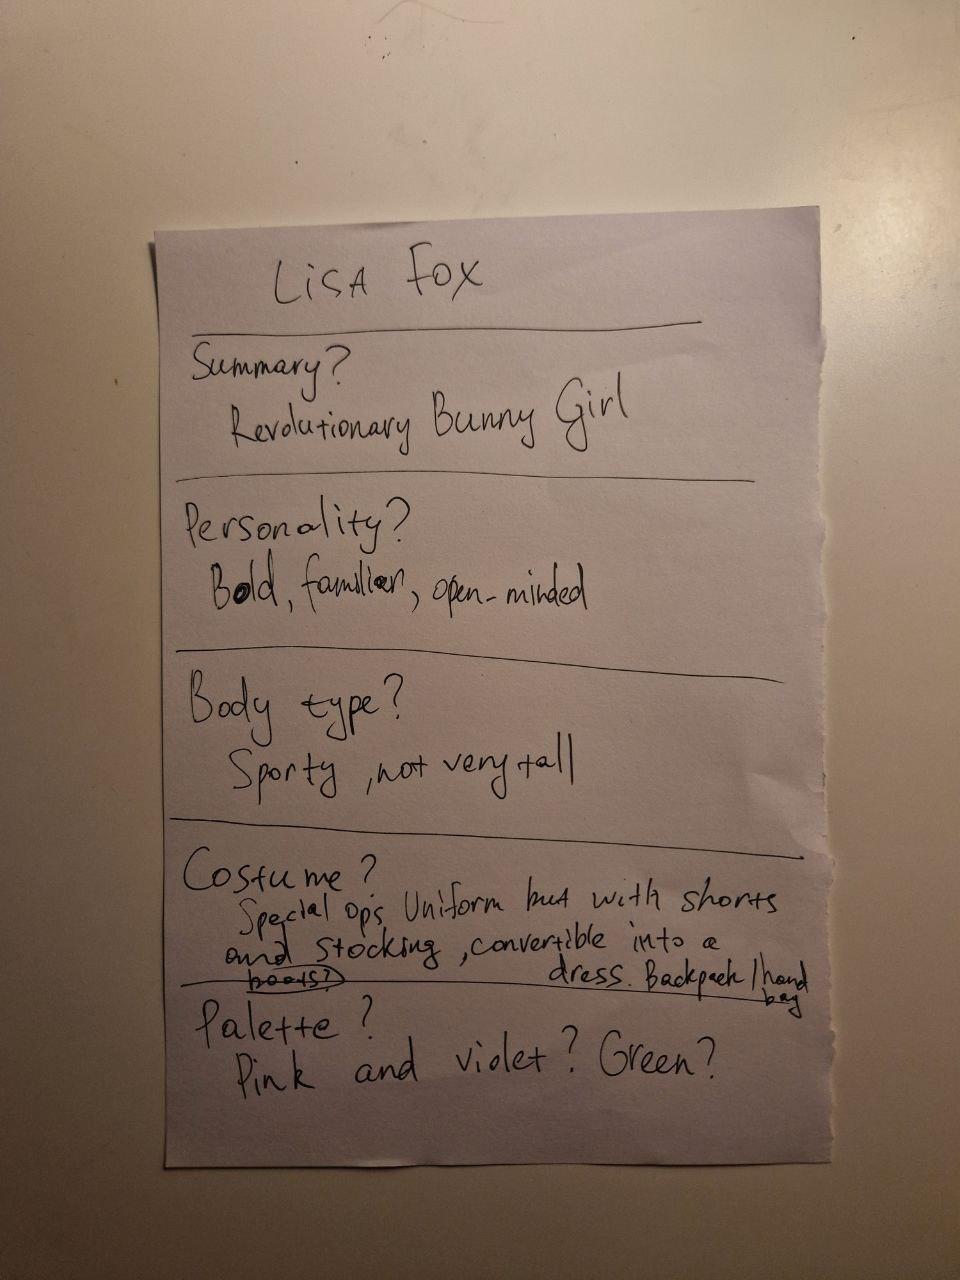 LiSA FOX
Summary?
Revolutionary Bunny Girl
Personality?
Bold, familiar, open-minded
Body type?
Sporty, not very tall
Costume?
Special ops Uniform but with shorts
and stocking, convertible into a
boots? dress. Backpack/hand
bag
Palette?
Pink and violet? Green?